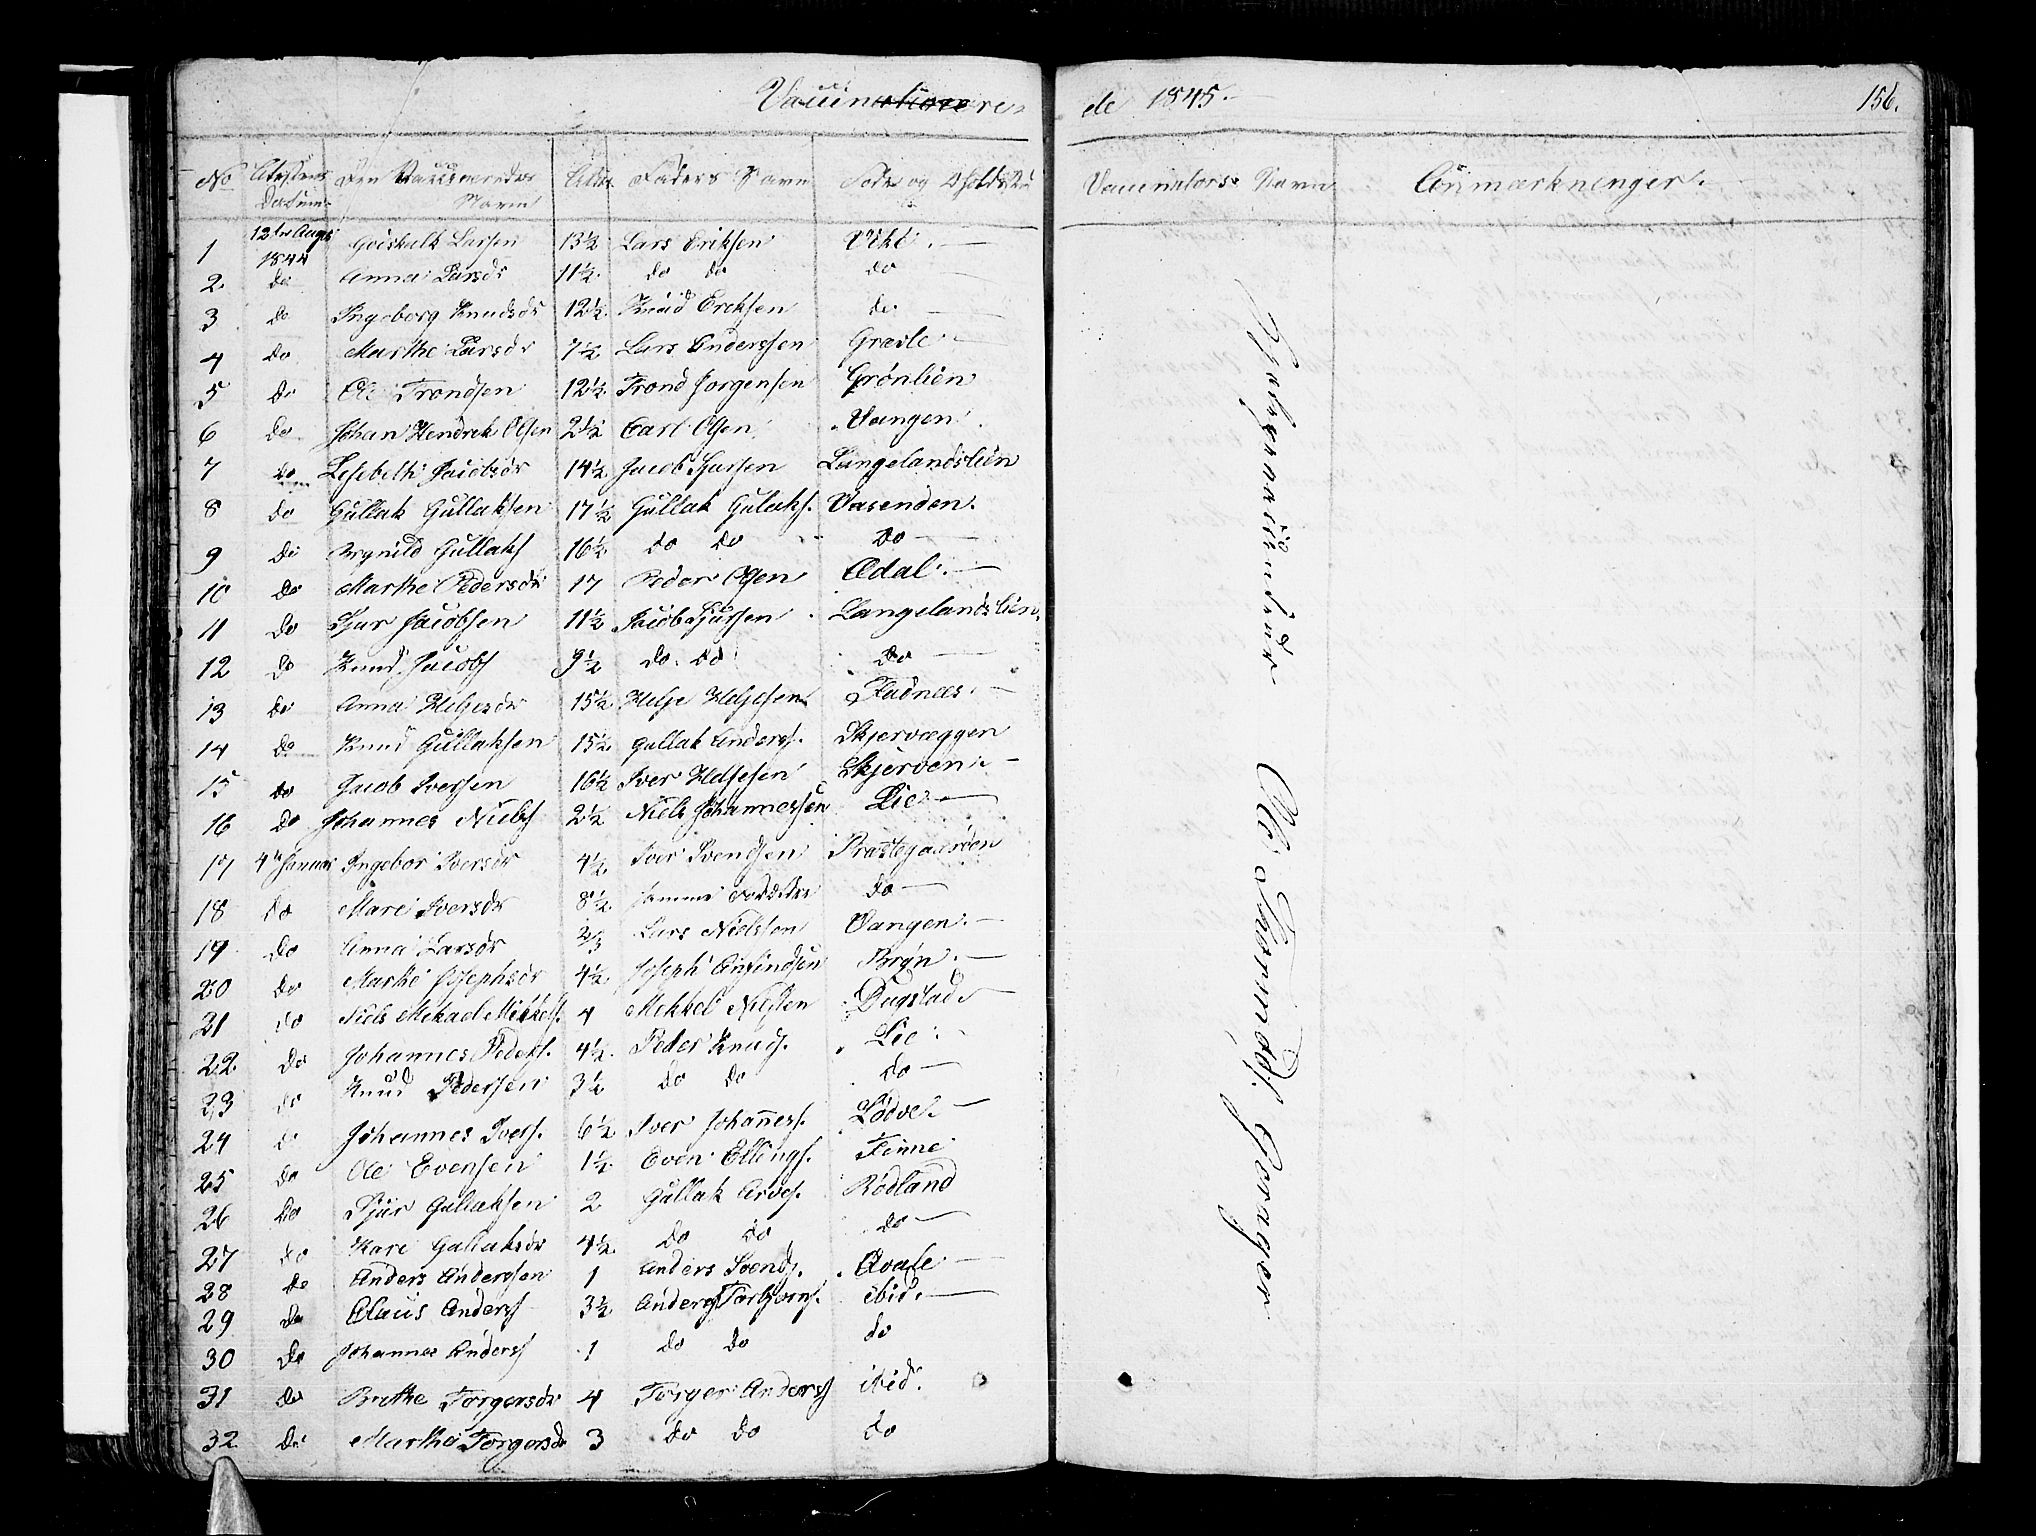 Vaccinerere- de 1845.- 156.
No Attestens Datum Den Vaccineredes Navn Alder Faders Navn Føde og Opholdssted Vaccinators Navn Anmærkninger.
1 12te Aug 1844 Goeskalk Larsen 13½ Lars Eriksen Vike.
2 do Anna Larsdr 11½ do do do
3 do Ingeborg Knudsdr 12½ Knud Ericksen do
4 do Marthe Larsdr 7½ Lars Anderssen Græsle
5 do Ole Trondsen 12½ Trond Jorgensen Grønlien
6 do Johan Hendrek Olsen 2½ Carl Olsen Vangen
7 do Lisebeth Jacobsdr 14½ Jacob Sjursen Langelandslien
8 do Gullak Gullaksen 17½ Gullak Gulaks. Vasenden.
9 do Brynild Gullaks 16½ do do do
10 do Marthe Pedersdr 17 Peder Olsen Ædal.
11 do Sjur Jacobsen 11½ Jacob Sjursen Langelandslien.
12 do Knud Jacobs 9½ do do do
13 do Anna Helgesdr 15½ Helge Helgesen Fladnæs
14 do Knud Gullaksen 15½ Gullak Anders. Skjervæggen
15 do Jacob Iversen 16½ Iver Helgesen Skjerven
16 do Johannes Niels 2½ Niels Johannessen Lie
17 4de Januar Ingebor Iversdr 4½ Iver Svendsen Præstegaarden
18 do Mari Iversdr 8½ samme do
19 do Anna Larsdr 2/3 Lars Nielssen Vangen
20 do Marthe Josephsdr 4½ Joseph Anfindsen Bryn.
21 do Niels Mekael Mikkels. 4 Mekkel Nilsen Dugstad
22 do Johannes Peders. 4½ Peder Knuds. Lie
23 do Knud Pedersen 3½ do do do
24 do Johannes Ivers. 6½ Iver Johannes. Lødve.
25 do Ole Evensen 1½ Even Ellings. Finne
26 do Sjur Gullaksen 2 Gullak Arves. Rødland
27 do Kari Gullaksdr 4½ do do do
28 do Anders Anderssen 1 Anders Svends. Qvale
29 do Claus Anders 3½ Anders Torbjorns. ibid.
30 do Johannes Anders 1 do do do
31 do Brithe Torgersdr 4 Torger Anders ibid.
32 do Marthe Torgersdr 3 do do do
Hjelpevaccinateur Ole Thormods. Gerager